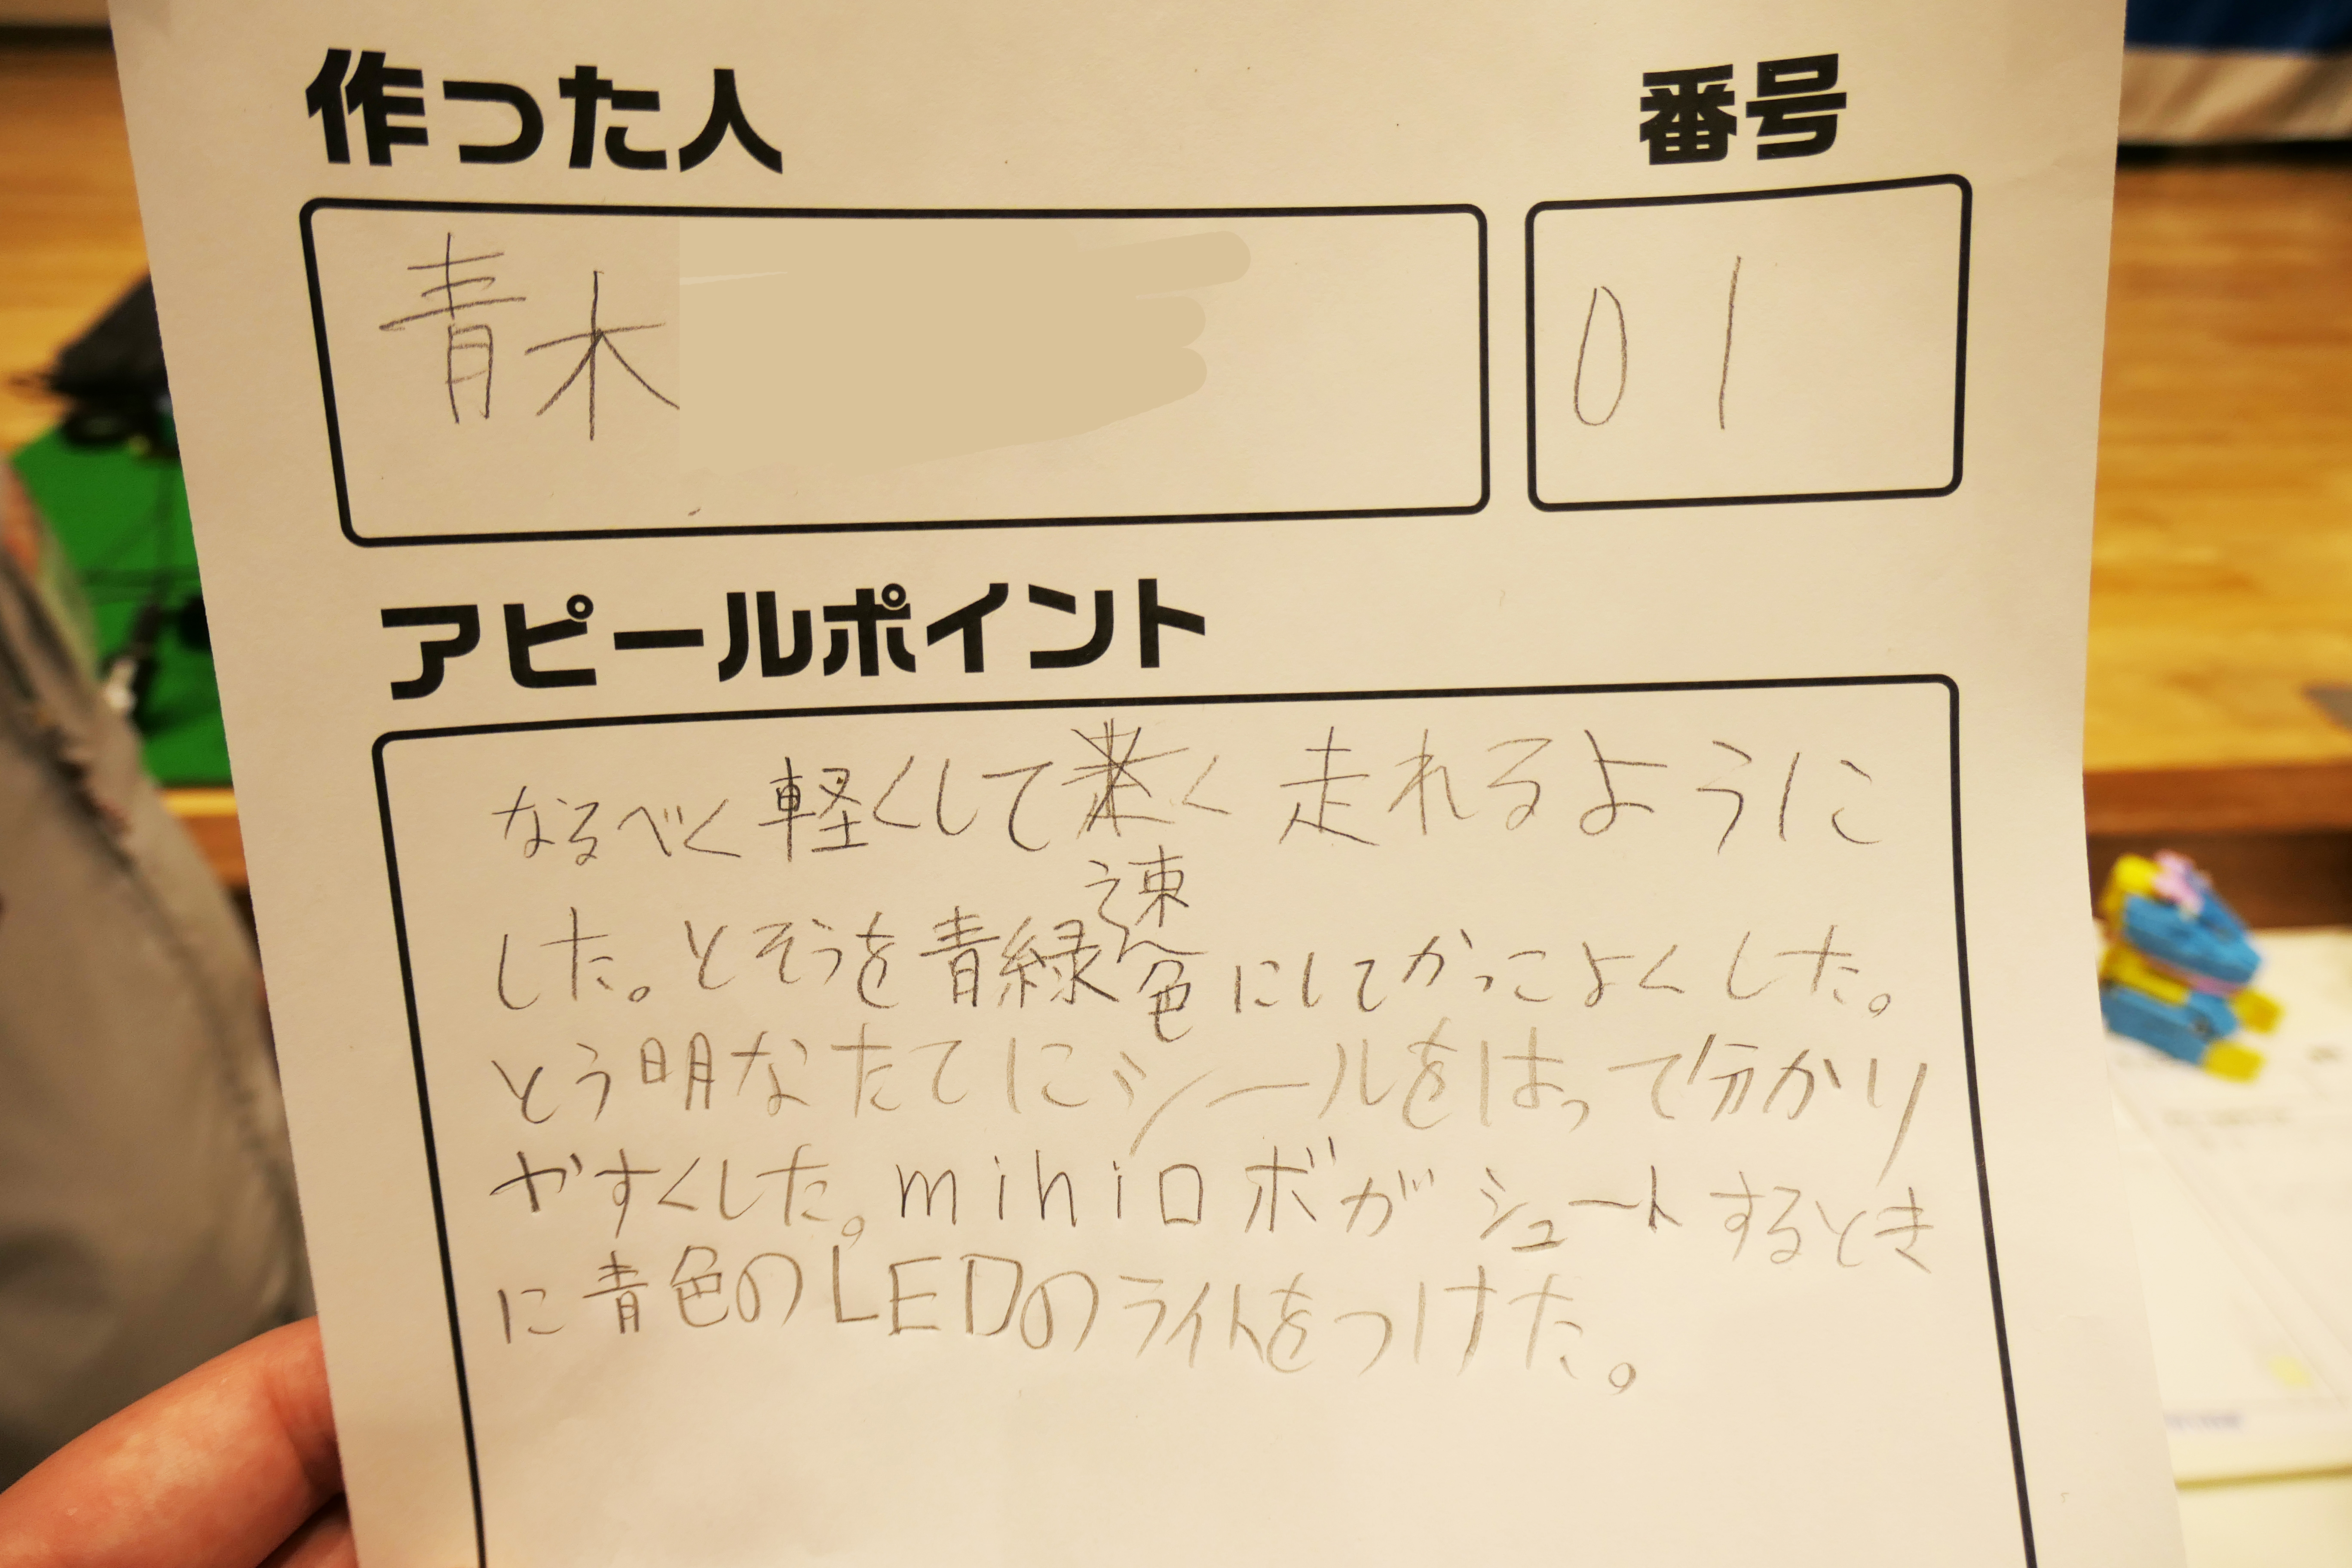 作った人 番号
青木 01
アピールポイント
なるべく軽くして速く走れるように
した。とそうを青緑色にしてかっこよくした。
とう明なたてにシールをはって分かり
やすくした。miniロボがシュートするとき
に青色のLEDのライトをつけた。